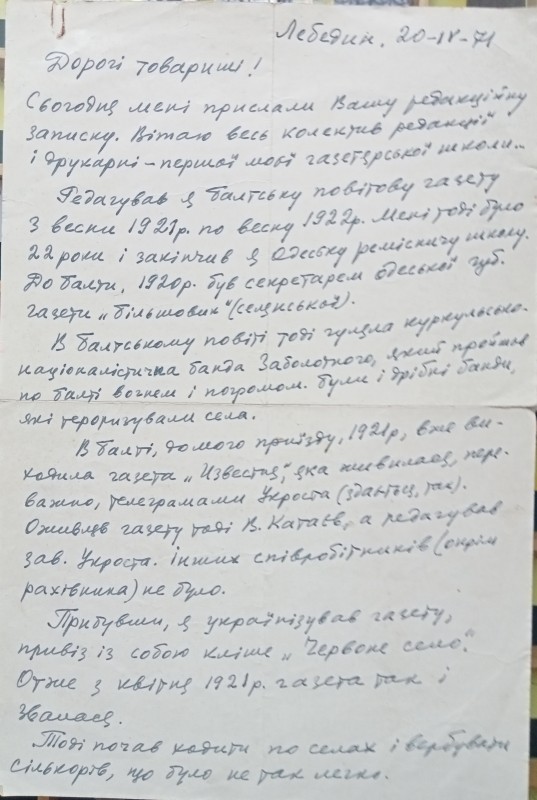 Лебедин. 20-IV-71
Дорогі товариші!
Сьогодня мені прислали Вашу редакційну
записку. Вітаю весь колектив редакції
і друкарні – першої моєї газетярської школи...
Редагував я балтську повітову газету
з весни 1921 р. по весну 1922 р. Мені тоді було
22 роки і закінчив я Одеську ремісничу школу.
До Балти, 1920 р. був секретарем одеської губ.
газети „Більшовик" (селянської).
В Балтському повіті тоді гуляла куркульсько-
націоналістична банда Заболотного, який пройшов
по Балті вогнем і погромом. Були і дрібні банди,
які тероризували села.
В Балті, до мого приїзду, 1921 р, вже ви-
ходила газета „Известия", яка живилась, пере-
важно, телеграмами Укроста (здається, так).
Оживляв газету тоді В. Катаєв, а редагував
зав. Укроста. Інших співробітників (окрім
рахівника) не було.
Прибувши, я українізував газету,
привіз із собою кліше „Червоне село".
Отже з квітня 1921 р. газета так і
звалася.
Тоді почав ходити по селах і вербувати
сількорів, що було не так легко.